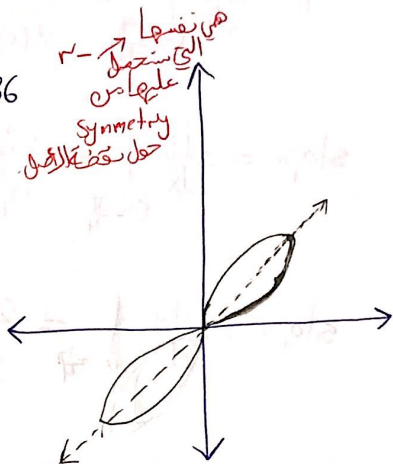 هي نفسها
-r → التي ستحصل
عليها من
Symmetry
حول نقطة الأصل.
36